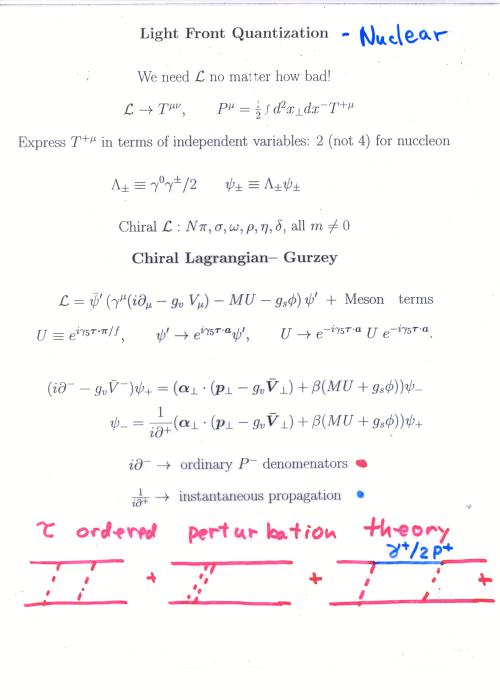 Light Front Quantization - Nuclear
We need ℒ no matter how bad!
ℒ → T^{μν},   P^μ = ½ ∫ d²x_⊥dx⁻T^{+μ}
Express T^{+μ} in terms of independent variables: 2 (not 4) for nuccleon
Λ_± ≡ γ⁰γ^±/2   ψ_± ≡ Λ_±ψ_±
Chiral ℒ : Nπ, σ, ω, ρ, η, δ, all m ≠ 0
Chiral Lagrangian– Gurzey
ℒ = ψ̄′ (γ^μ(i∂_μ − g_v V_μ) − MU − g_sϕ) ψ′ + Meson terms
U ≡ e^{iγ₅τ·π/f},   ψ′ → e^{iγ₅τ·a}ψ′,   U → e^{−iγ₅τ·a} U e^{−iγ₅τ·a}.
(i∂⁻ − g_vV̄⁻)ψ₊ = (α_⊥ · (p_⊥ − g_vV̄_⊥) + β(MU + g_sϕ))ψ₋
ψ₋ = \frac{1}{i∂⁺}(α_⊥ · (p_⊥ − g_vV̄_⊥) + β(MU + g_sϕ))ψ₊
i∂⁻ → ordinary P⁻ denomenators
\frac{1}{i∂⁺} → instantaneous propagation
τ ordered perturbation theory
γ⁺/2P⁺
+ + +